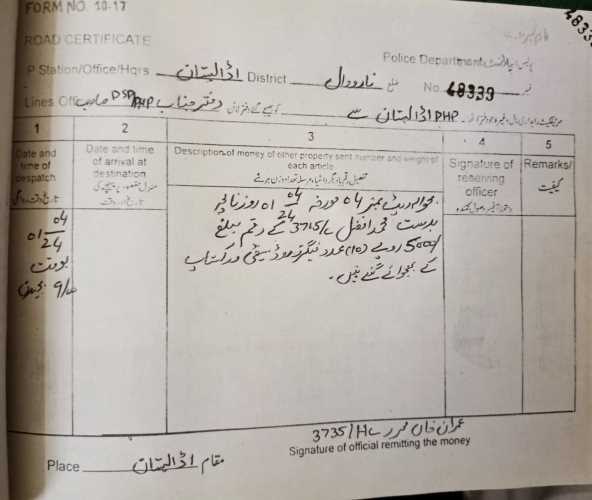 FORM NO. 10-17
48339
ROAD CERTIFICATE
Police Department
P Station/Office/Hqrs اڈا لیتان District نارووال ضلع No. 48339 نمبر
Lines Off دفتر جناب DSP/PHP صاحب کیلئے دفتر لائن PHP اڈا لیتان سے
1 2 3 4 5
Date and time of despatch
Date and time of arrival at destination
Description of money of other property sent number and weight of each article
Signature of reseiring officer
Remarks/ کیفیت
04
01/24 بوقت
9/ بجے دن
بحوالہ رپٹ نمبر 04 مورخہ 01 04/24 روزنامچہ
بدست محمد افضل 3715/c کے رقم مبلغ
5000/ روپے (10) عدد
کے بھجوائے گئے ہیں۔
عمران خان محرر 3735/HC
Signature of official remitting the money
Place اڈا لیتان مقام